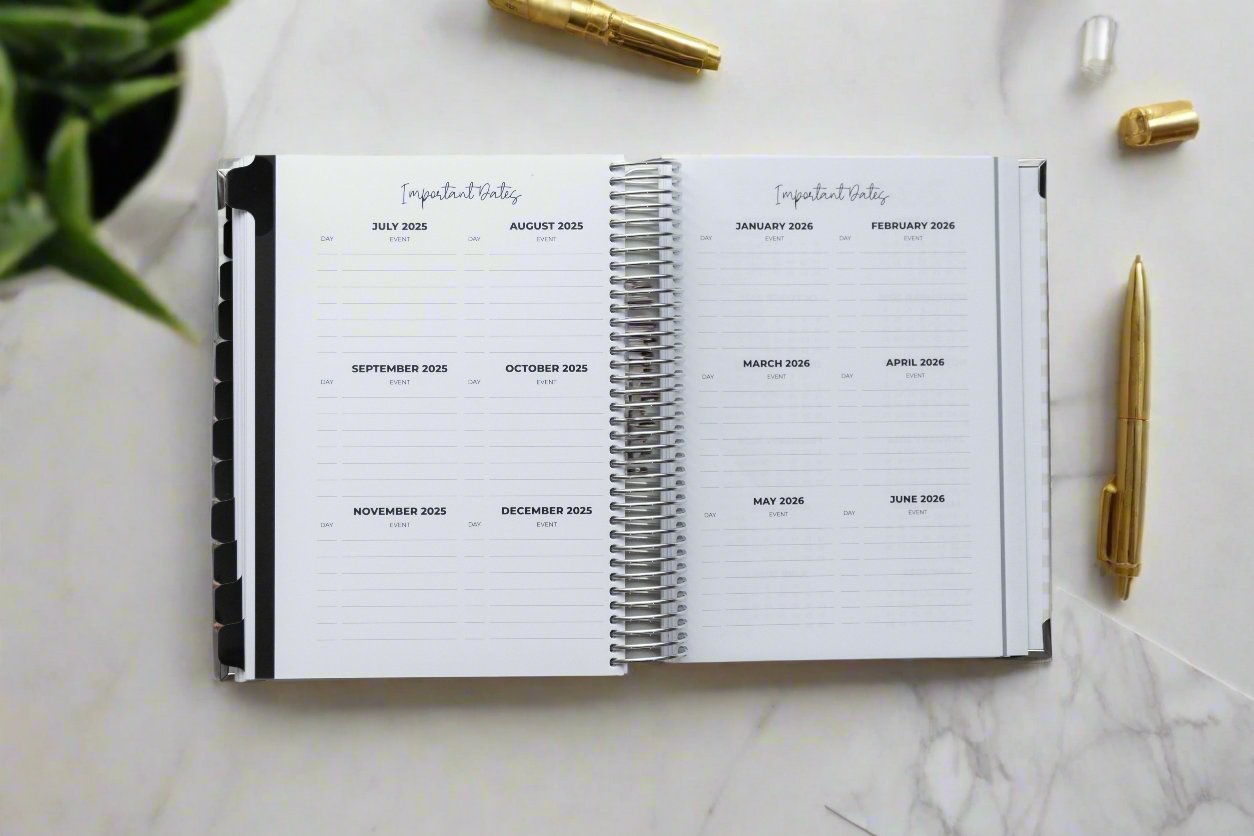 Important Dates
JULY 2025
DAY EVENT
AUGUST 2025
DAY EVENT
SEPTEMBER 2025
DAY EVENT
OCTOBER 2025
DAY EVENT
NOVEMBER 2025
DAY EVENT
DECEMBER 2025
DAY EVENT
Important Dates
JANUARY 2026
DAY EVENT
FEBRUARY 2026
DAY EVENT
MARCH 2026
DAY EVENT
APRIL 2026
DAY EVENT
MAY 2026
DAY EVENT
JUNE 2026
DAY EVENT